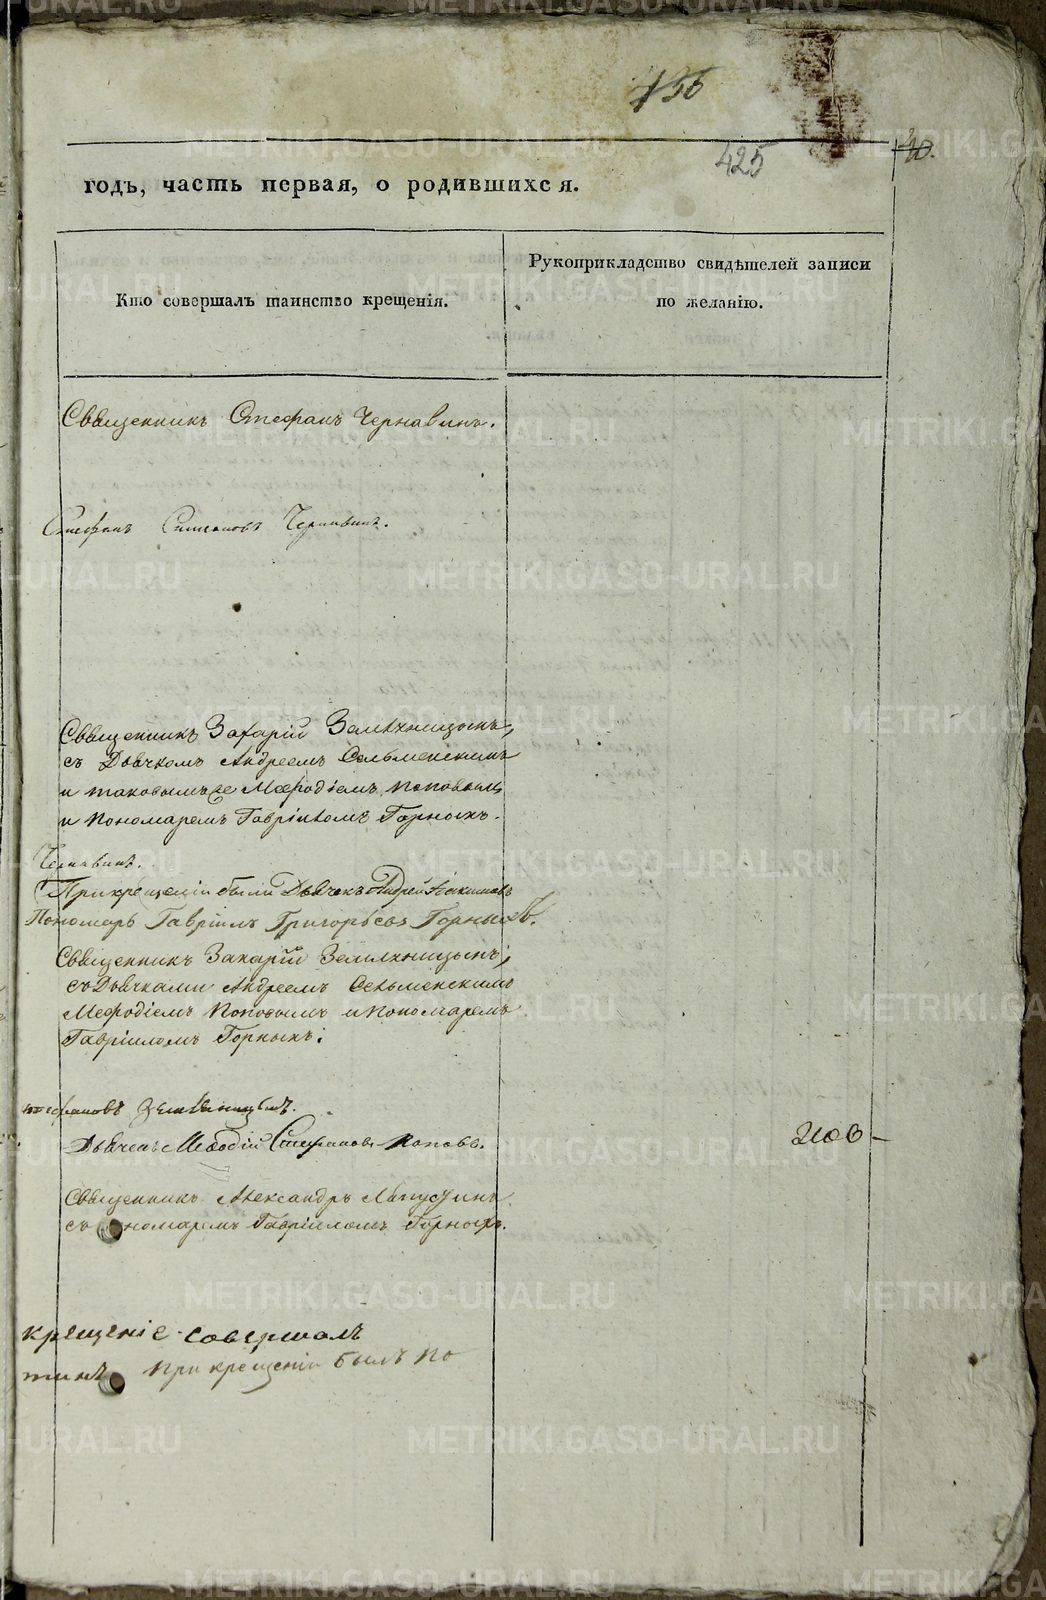 156
425
40.
годъ, часть первая, о родившихся.
Кто совершалъ таинство крещенія.
Рукоприкладство свидѣтелей записи
по желанію.
Священникъ Стефанъ Чернавинъ.
Стефанъ Симеоновъ Чернавинъ.
Священникъ Захарій Земляницынъ,
съ Дьячкомъ Андреемъ Сельменскимъ
и таковымъ же Мефодіемъ Поповымъ
и Пономаремъ Гавріиломъ Горныхъ.
Чернавинъ.
При крещеніи были Дьячекъ Андрей
Пономарь Гавріилъ Григорьевъ Горныхъ.
Священникъ Захарій Земляницынъ,
съ Дьячками Андреемъ Сельменскимъ
Мефодіемъ Поповымъ и Пономаремъ
Гавріиломъ Горныхъ.
Земляницынъ.
Дьячекъ Меѳодій Стефановъ Поповъ.
Священникъ Александръ Лапустинъ
съ номаремъ Гавріиломъ Горныхъ.
крещеніе совершалъ
тинъ при крещеніи былъ по
METRIKI.GASO-URAL.RU